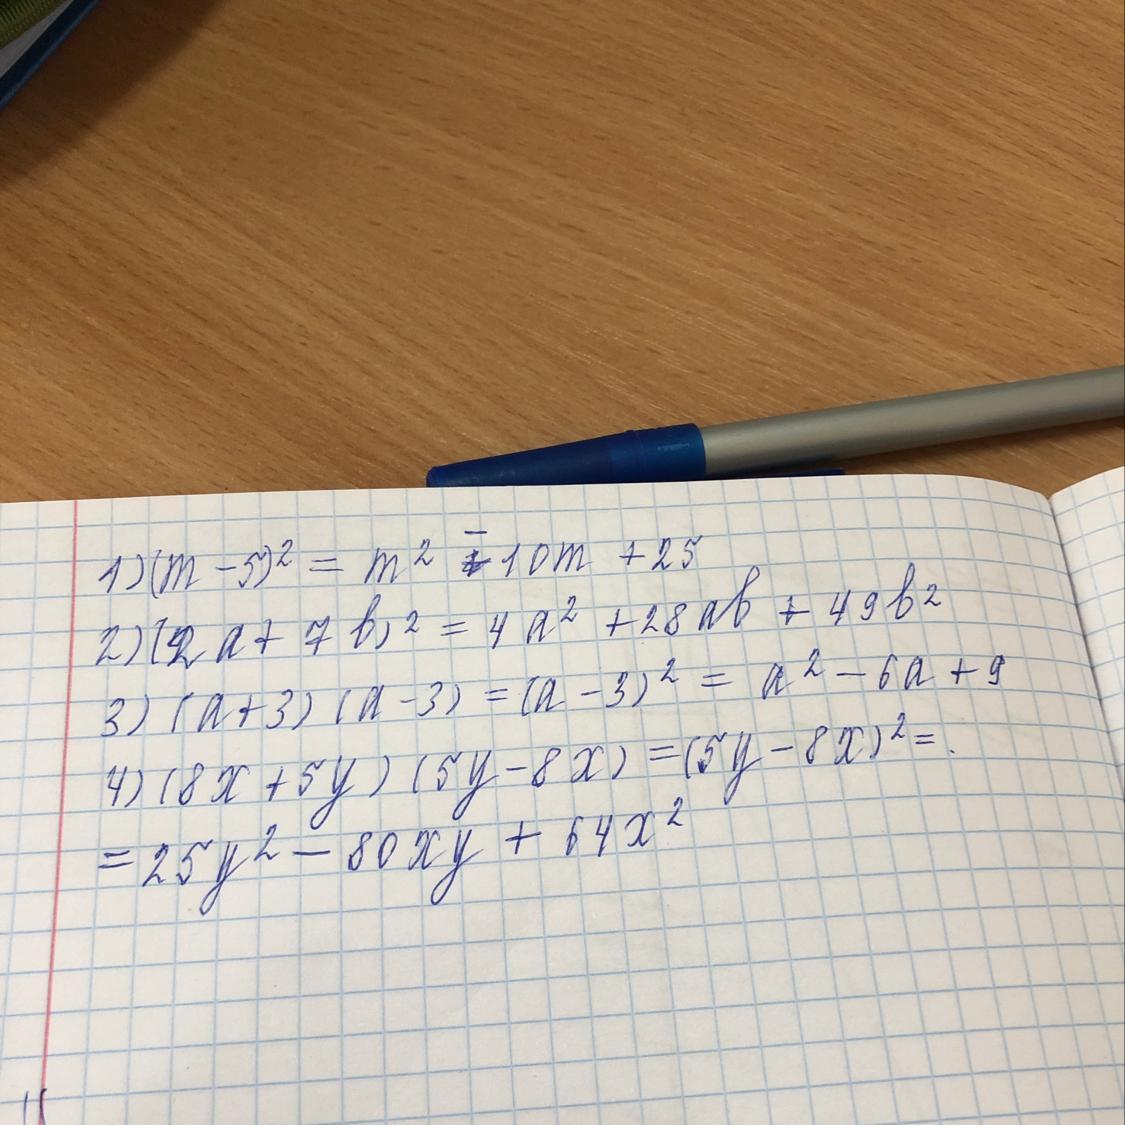 1) (m - 5)² = m² - 10m + 25
2) (2a + 7b)² = 4a² + 28ab + 49b²
3) (a+3) (a-3) = (a-3)² = a² - 6a + 9
4) (8x + 5y) (5y - 8x) = (5y - 8x)² =
= 25y² - 80xy + 64x²